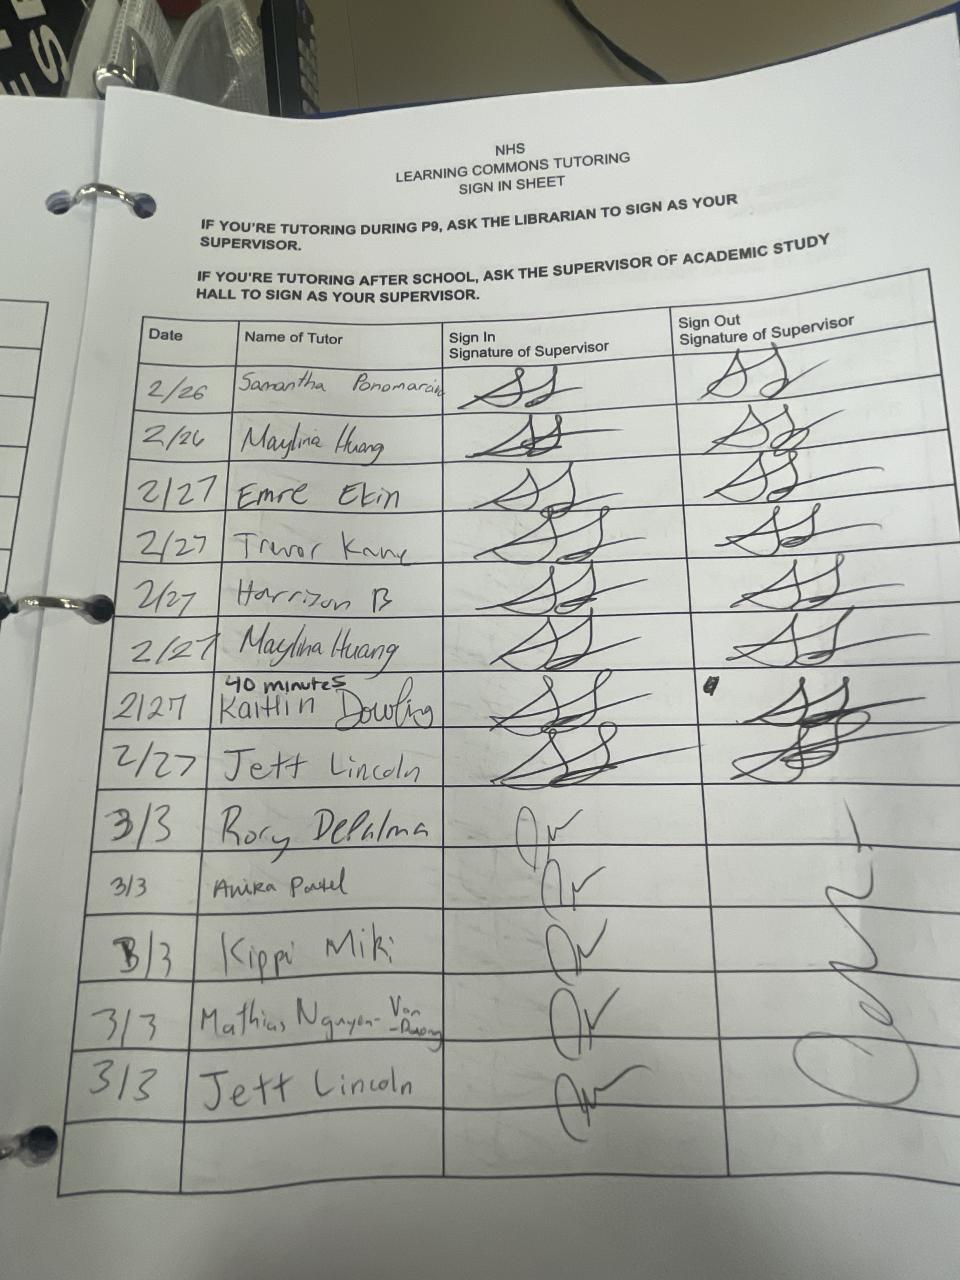 NHS
LEARNING COMMONS TUTORING
SIGN IN SHEET
IF YOU'RE TUTORING DURING P9, ASK THE LIBRARIAN TO SIGN AS YOUR
SUPERVISOR.
IF YOU'RE TUTORING AFTER SCHOOL, ASK THE SUPERVISOR OF ACADEMIC STUDY
HALL TO SIGN AS YOUR SUPERVISOR.
Date Name of Tutor Sign In Signature of Supervisor Sign Out Signature of Supervisor
2/26 Samantha
2/26 Maylina Huang
2/27 Emre Ekin
2/27 Trevor
2/27 Harrison B
2/27 Maylina Huang
40 minutes
2/27 Kaitlin Dowling
2/27 Jett Lincoln
3/3 Rory DePalma
3/3 Anika Patel
3/3 Kippi Miki
3/3 Mathias Nguyen-Van
3/3 Jett Lincoln